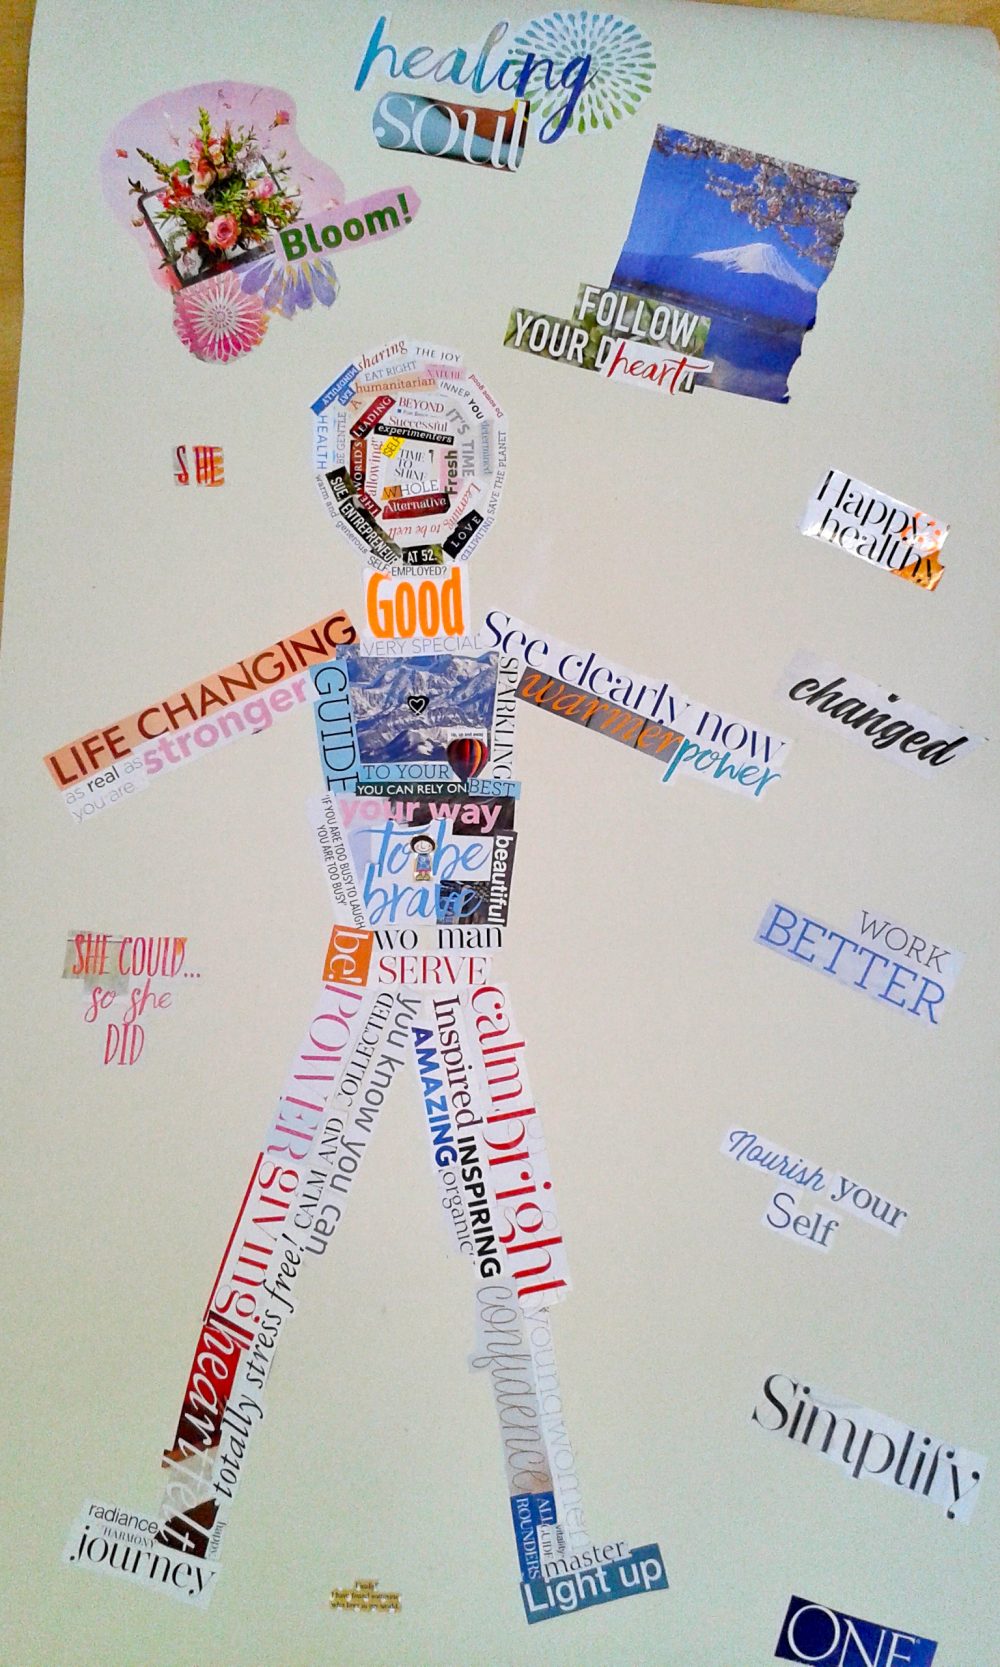 healing
SOUL
Bloom!
FOLLOW
YOUR
heart
sharing THE JOY
EAT RIGHT
NATURE
MINDFULLY
EAT
A humanitarian
INNER YOU
Do some good
HEALTH
BE GENTLE
warm and generous
determined
SAVE THE PLANET
UNLIMITED
THE WORLD'S LEADING
BEYOND
Successful
experimenters
IT'S TIME
allowing
SELF
TIME
TO
SHINE
WHOLE
Fresh
Alternative
Learning to be well
LOVE
SUE, ENTREPRENEUR
AT 52.
SELF-EMPLOYED?
SHE
Happy,
healthy
GOOD
VERY SPECIAL
LIFE CHANGING
as real as
you are
stronger
See clearly now
warmer
power
changed
GUIDE
SPARKLING
Up, up and away
TO YOUR
BEST
YOU CAN RELY ON
your way
'IF YOU ARE TOO BUSY TO LAUGH
YOU ARE TOO BUSY'
to be
brave
beautiful
be!
wo man
SERVE
SHE COULD...
so she
DID
WORK
BETTER
POWER
CALM AND COLLECTED
you know you can
giving
heartfelt
totally stress free!
Inspired
AMAZING
INSPIRING
organic
calm
bright
confidence
young women
Nourish your
Self
Simplify
radiance
HARMONY
happy
journey
ALL
ROUNDERS
GUIDE
vitality
master
Light up
ONE